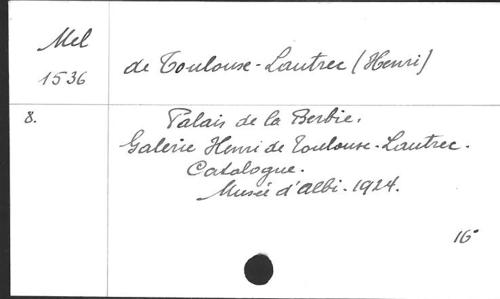 Mel
1536
de Toulouse-Lautrec (Henri)
8.
Palais de la Berbie.
Galerie Henri de Toulouse-Lautrec.
Catalogue.
Musée d'Albi. 1924.
16°